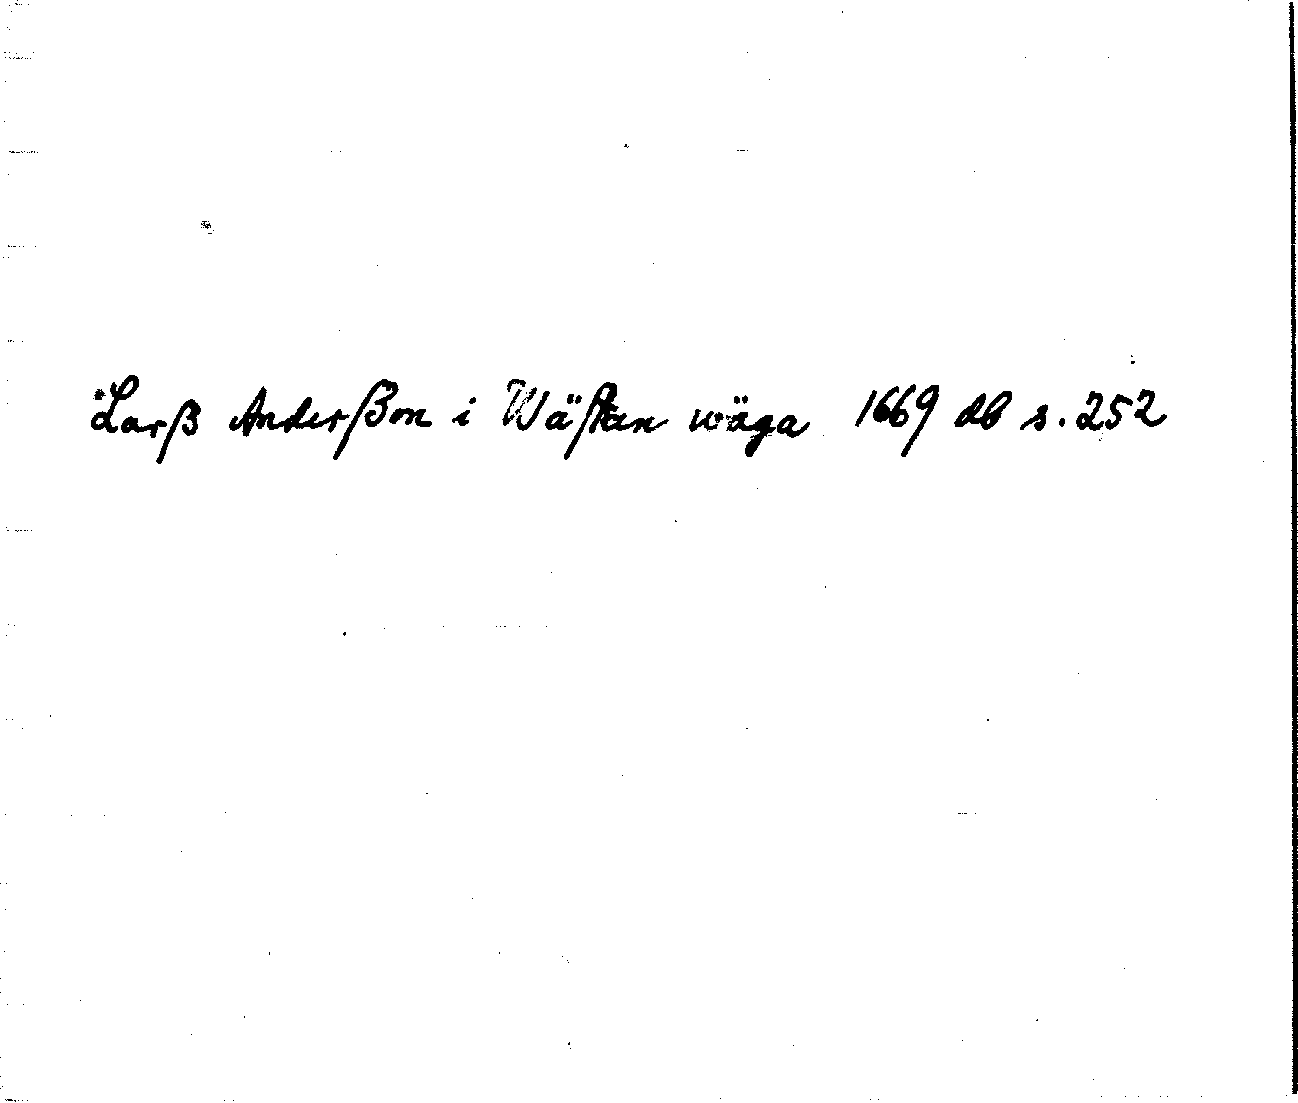 Larß Anderßon i Wästan wäga 1669 db s. 252